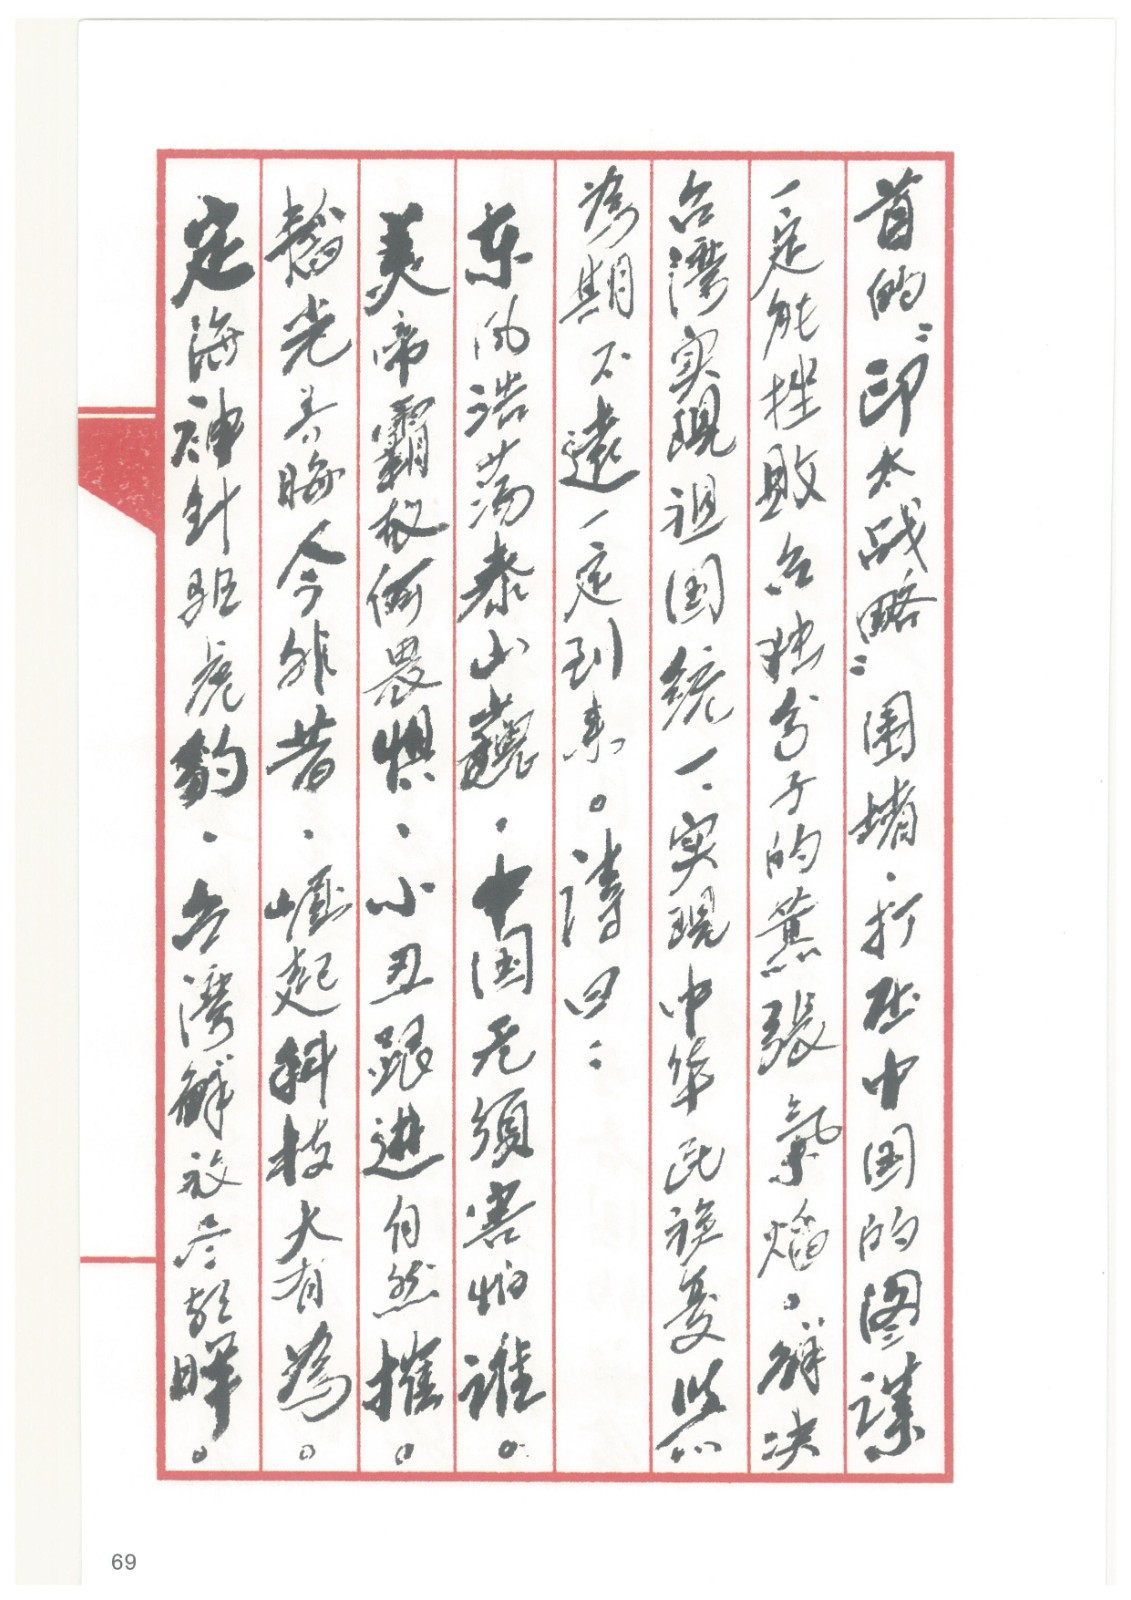 首的“印太战略”围堵、打压中国的图谋
一定能挫败台独分子的嚣张氣焰。解决
台湾实现祖国统一、实现中华民族复兴
為期不遠一定到来。诗曰：
东风浩荡泰山巍、中国无须害怕谁。
美帝霸权何畏惧、小丑跟进自然摧。
韬光养晦今非昔、崛起科技大有為。
定海神针驱虎豹、台湾解放尽朝晖。
69